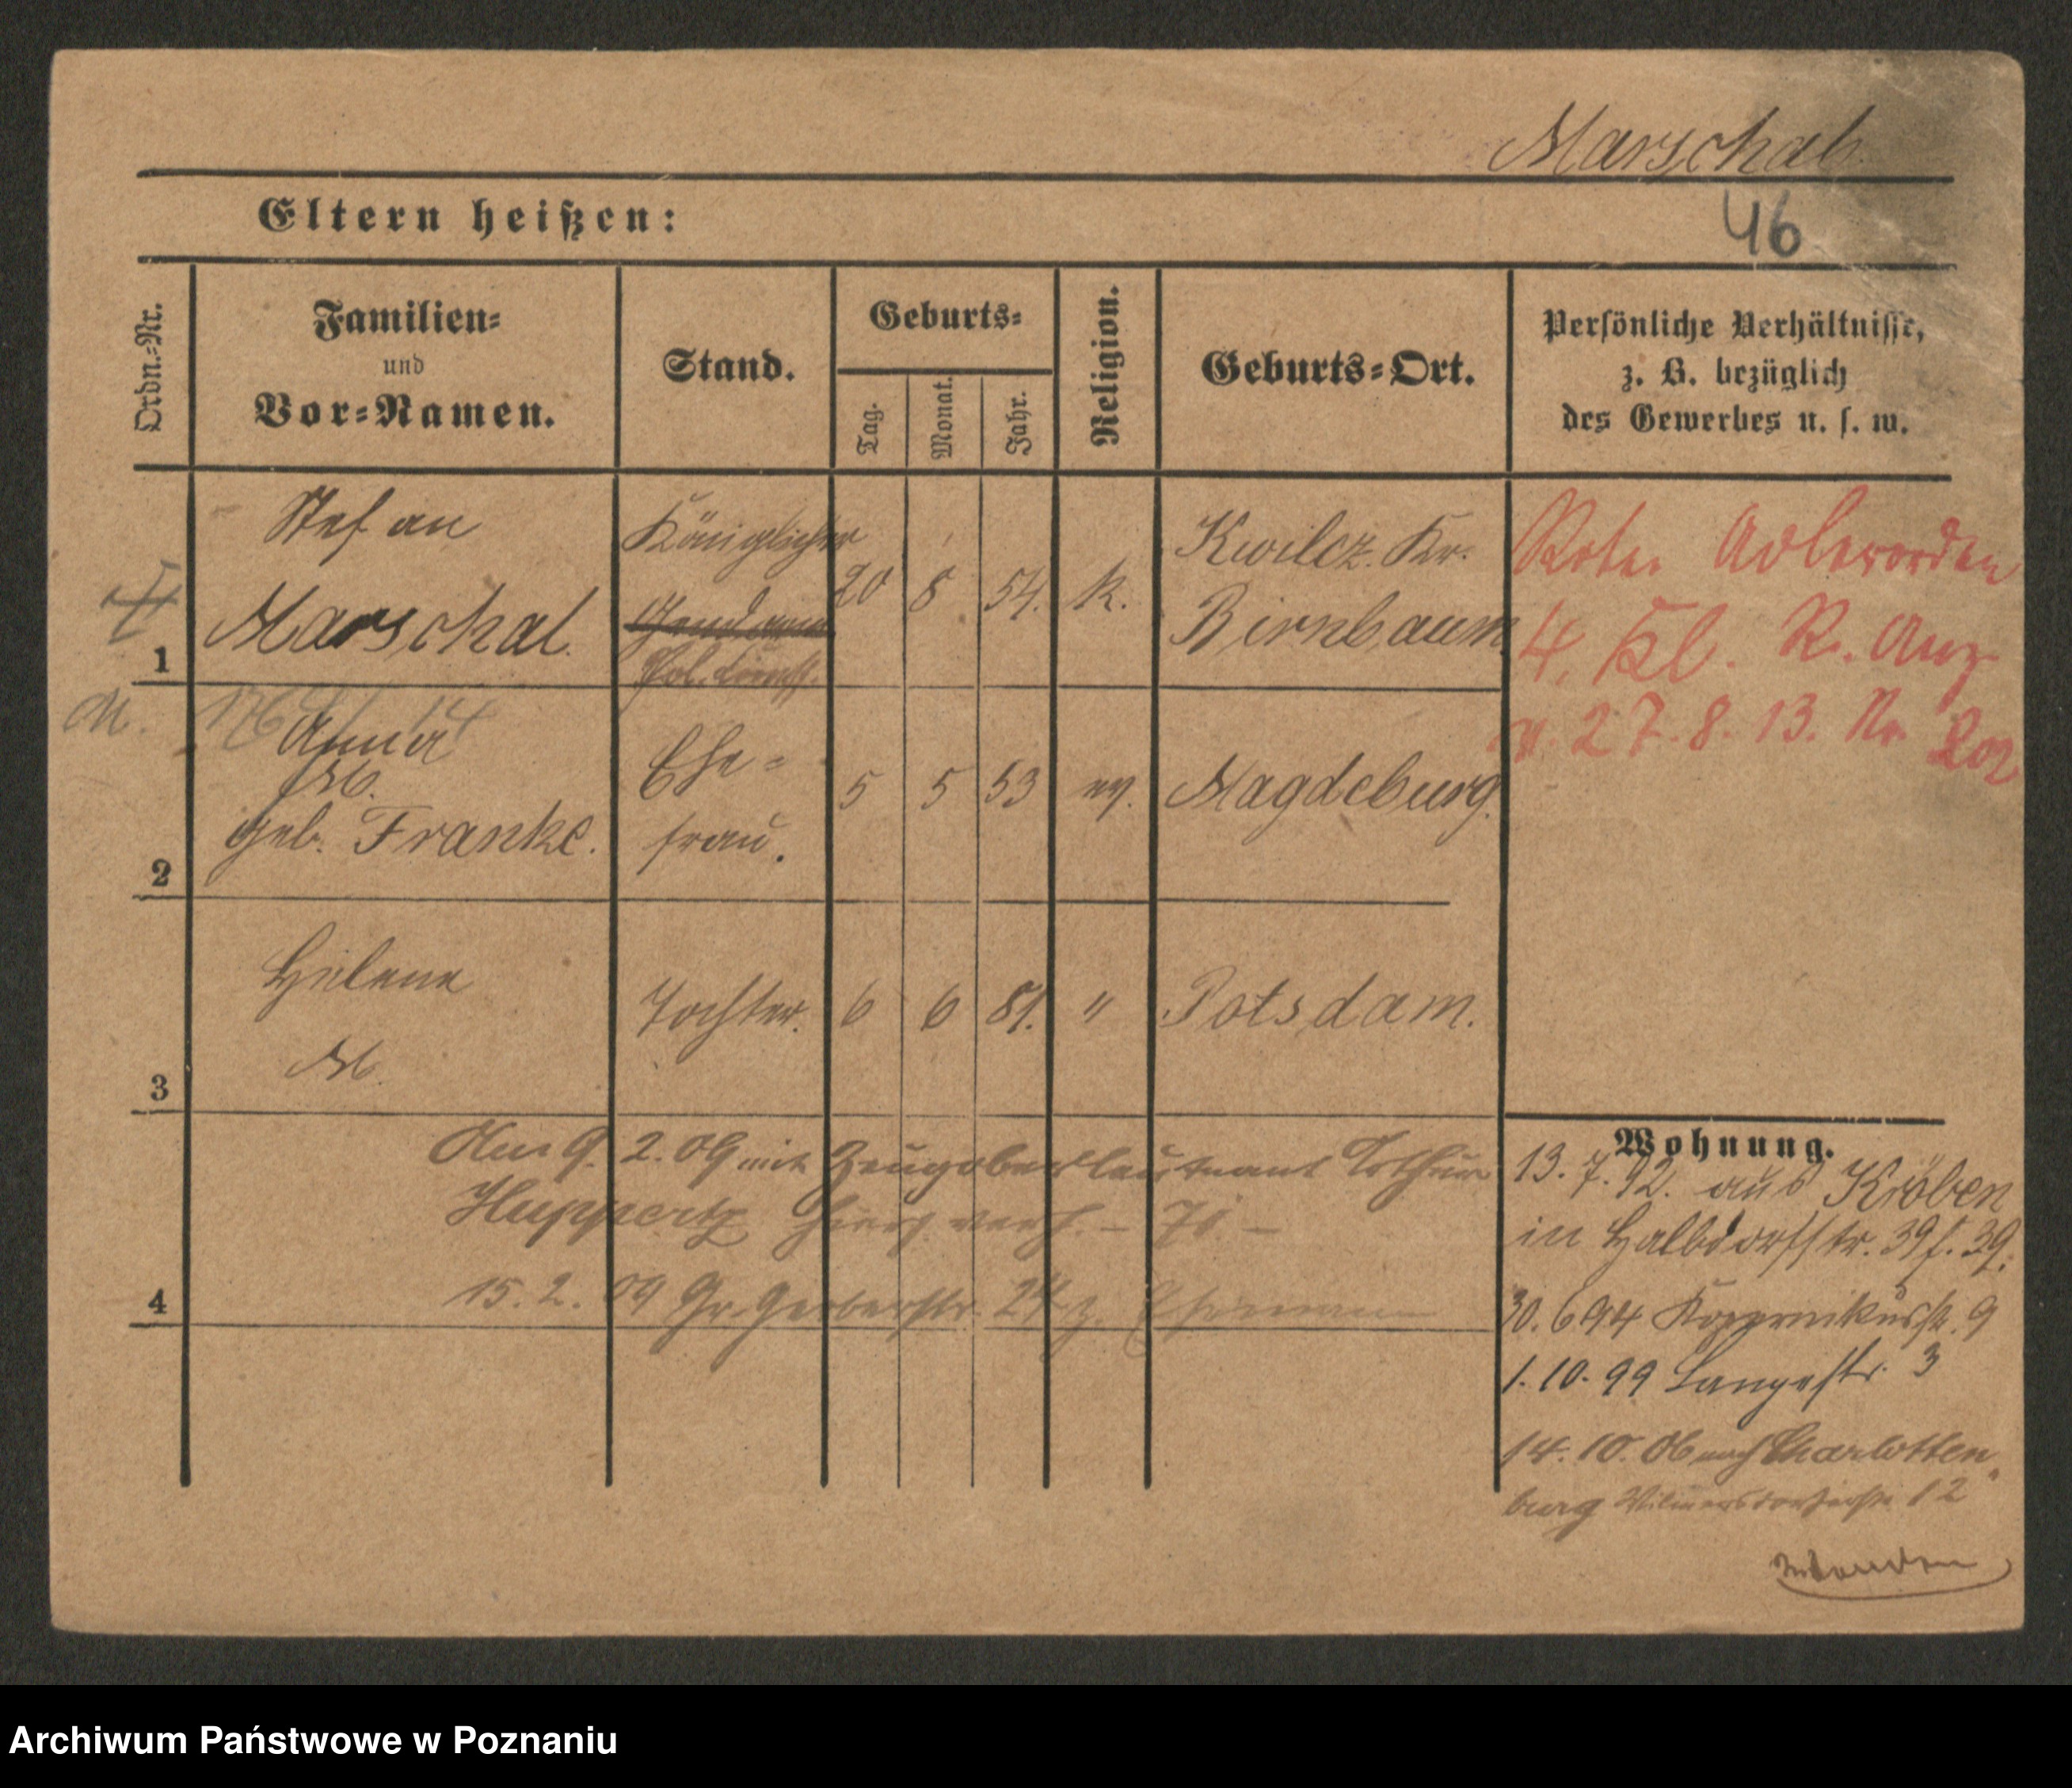 Marschal.
Eltern heißen:
46
Ordn.=Nr.
Familien=
und
Vor=Namen.
Stand.
Geburts=
Tag.
Monat.
Jahr.
Religion.
Geburts=Ort.
Persönliche Verhältnisse,
z. B. bezüglich
des Gewerbes u. s. w.
1
Stefan
Marschal.
Königlicher
Gendarm
20 8 54. k.
Kwilcz. Kr.
Birnbaum.
Roter Adlerorden
4. Kl. R. Anz.
v. 27. 8. 13. Nr 202
M.
2
Anna
M.
geb. Franke.
Ehe=
frau.
5 5 53 ev.
Magdeburg.
3
Helene
M.
Tochter.
6 6 81. "
Potsdam.
Am 9. 2. 09 mit Zeugoberleutnant Arthur
Huppertz hiers. verh.
4
15. 2. 09 Gr. Gerberstr. z. Ehemann
Wohnung.
13. 7. 92. aus Kröben
in Halbdorfstr. 39 f. 39.
30. 6 94 Kopernikusstr. 9
1. 10. 99 Langestr. 3
14. 10. 06 nach Charlotten
burg Wilmersdorferstr. 12
Archiwum Państwowe w Poznaniu